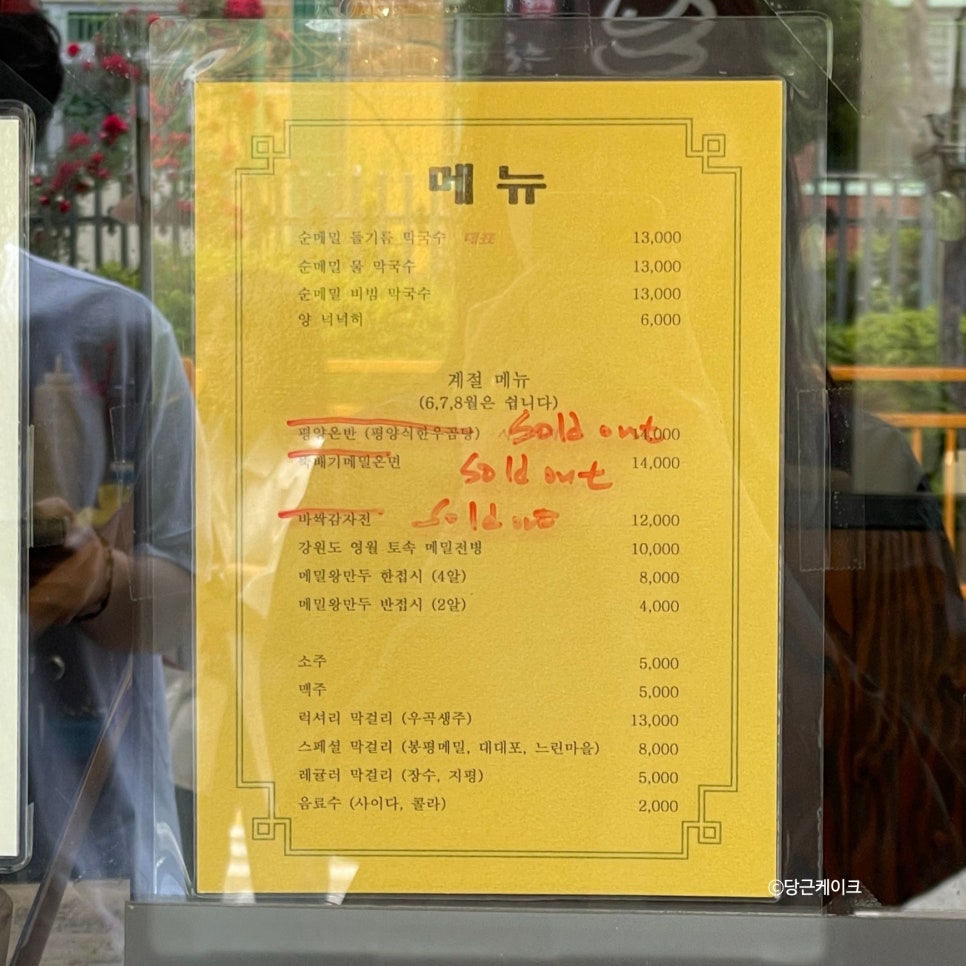 메뉴
순메밀 들기름 막국수 대표 13,000
순메밀 물 막국수 13,000
순메밀 비빔 막국수 13,000
양 넉넉히 6,000
계절 메뉴
(6,7,8월은 쉽니다)
평양온반 (평양식한우곰탕) Sold out 14,000
뚝배기메밀온면 Sold out 14,000
바싹감자전 Sold out 12,000
강원도 영월 토속 메밀전병 10,000
메밀왕만두 한접시 (4알) 8,000
메밀왕만두 반접시 (2알) 4,000
소주 5,000
맥주 5,000
럭셔리 막걸리 (우곡생주) 13,000
스페셜 막걸리 (봉평메밀, 대대포, 느린마을) 8,000
레귤러 막걸리 (장수, 지평) 5,000
음료수 (사이다, 콜라) 2,000
©당근케이크